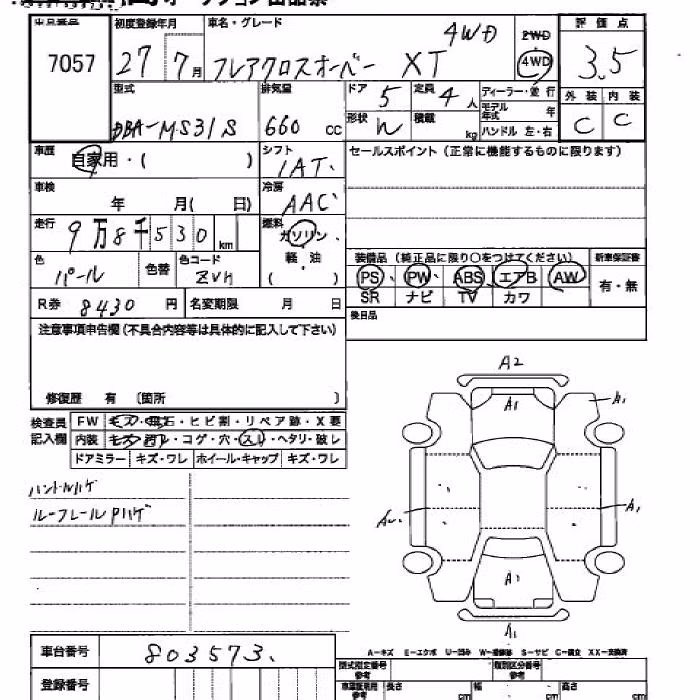 出品番号 初度登録年月 車名・グレード 評価点
7057 27 7月 フレアクロスオーバー XT 4WD 2WD 4WD 3.5
型式 排気量 ドア 5 定員 4人 ディーラー・並行 外装 内装
DBA-MS31S 660 cc 形状 積載 kg モデル年式 年 C C
ハンドル 左・右
車歴 自家用・( ) シフト 1AT セールスポイント(正常に機能するものに限ります)
車検 年 月( 日) 冷房 AAC
走行 9万8千530 km 燃料 ガソリン、
色 パール 色替 色コード ZVH 軽・油 ( )
装備品(純正品に限り〇をつけてください) 新車保証書
PS、PW、ABS エアB AW 有・無
SR ナビ TV カワ
R券 8430 円 名変期限 月 日 後日品
注意事項申告欄(不具合内容等は具体的に記入して下さい)
修復歴 有 〔箇所 〕
検査員記入欄 FW 石・ヒビ割・リペア跡・X要
内装 ・コゲ・穴・スレ・ヘタリ・破レ
ドアミラー キズ・ワレ ホイール・キャップ キズ・ワレ
ハンドルハゲ
ルーフレールPハゲ
A2
A1
A1
A1
A1
A1
車台番号 803573
A-キズ E-エクボ U-凹み W-補修跡 S-サビ C-腐食 XX-交換済
登録番号
型式指定番号 参考 類別区分番号 参考
長さ cm 幅 cm 高さ cm